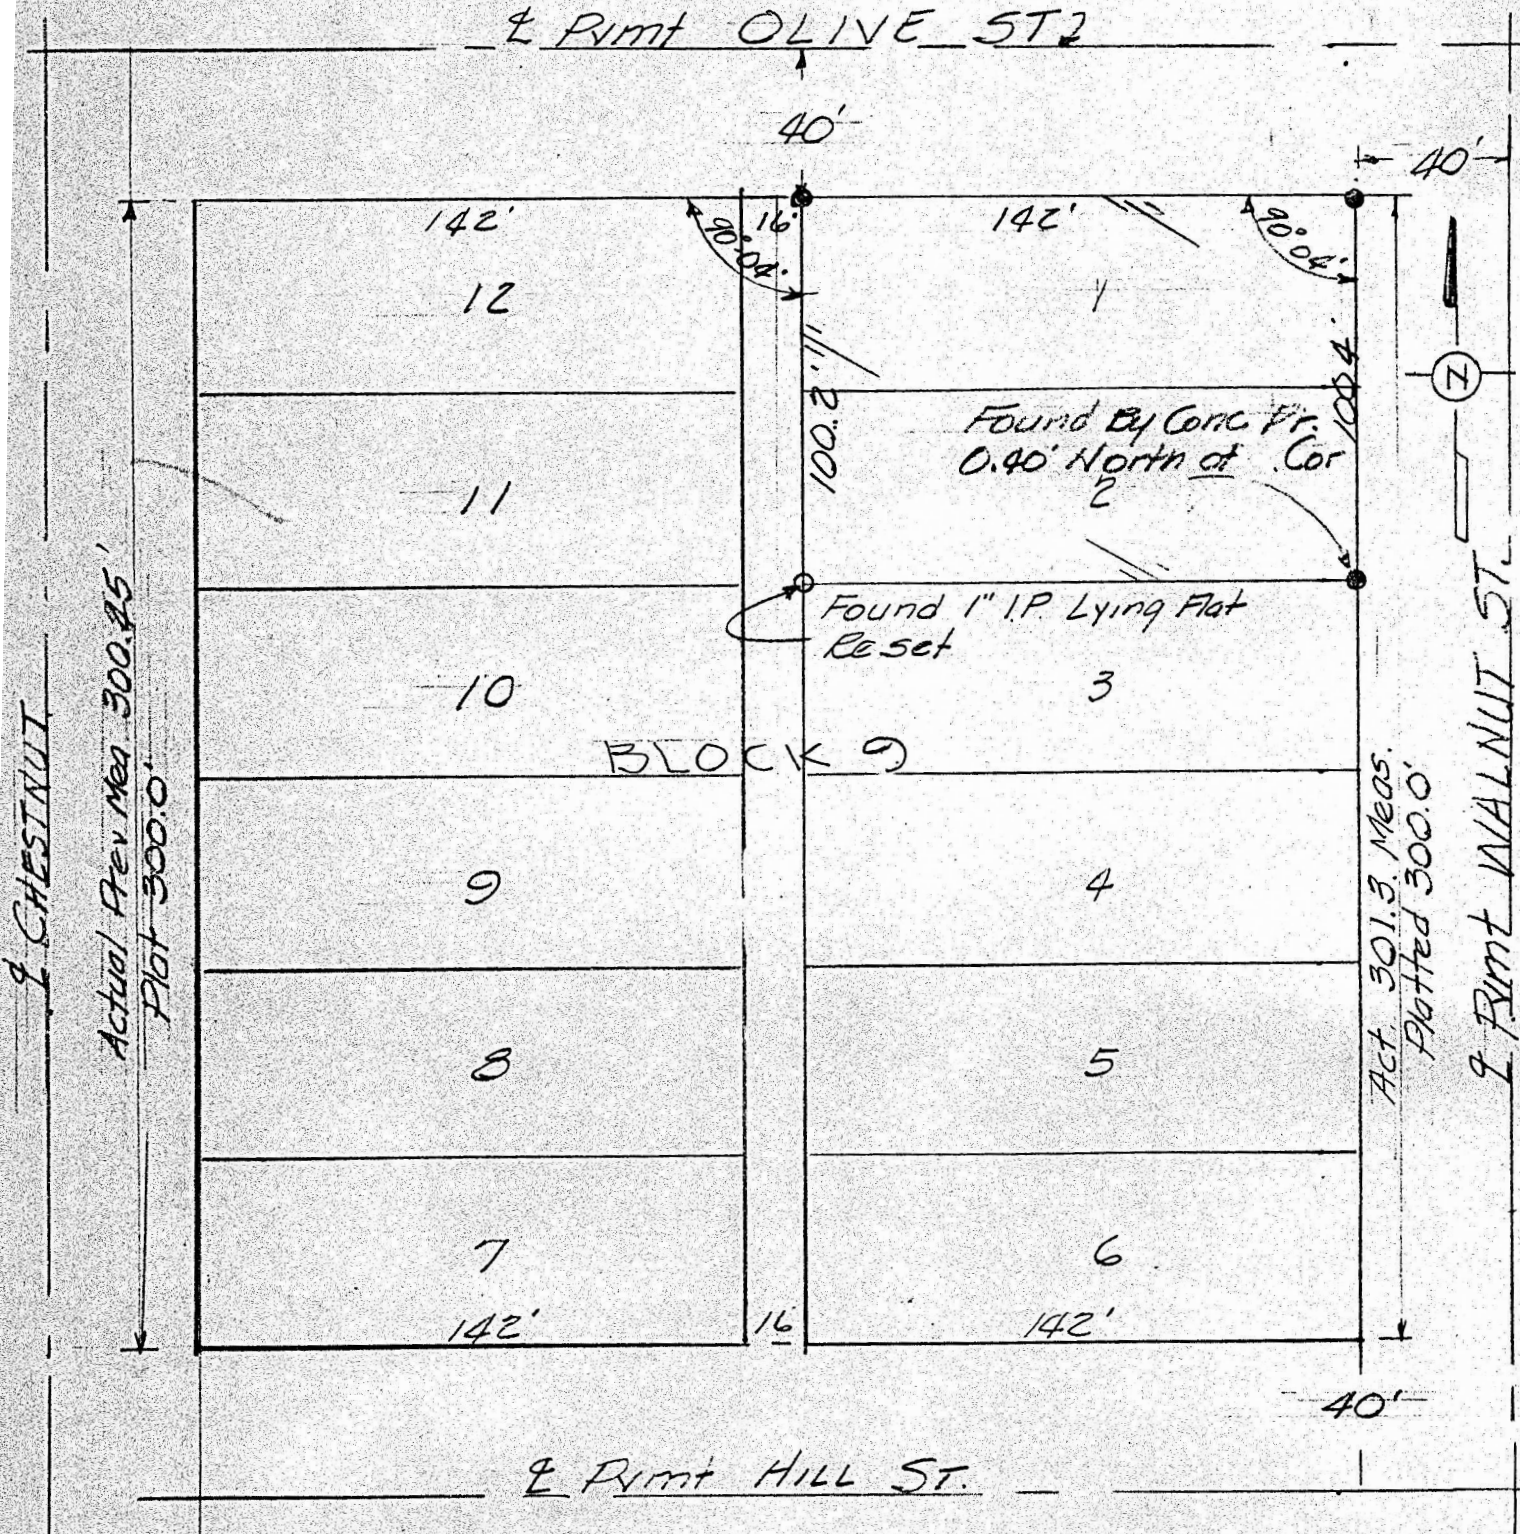 ℄ Pvmt OLIVE ST.
40'
40'
142'
16'
142'
90°04'
90°04'
12
1
100.2'
100.4'
Found By Conc Pr.
0.40' North of Cor
11
2
Z
Found 1" I.P. Lying Flat
Reset
10
3
BLOCK 9
℄ CHESTNUT
Actual Prev Mea. 300.45'
Plat 300.0'
Act. 301.3 Meas.
Platted 300.0'
℄ Pvmt WALNUT ST.
9
4
8
5
7
6
142'
16
142'
40'
℄ Pvmt HILL ST.